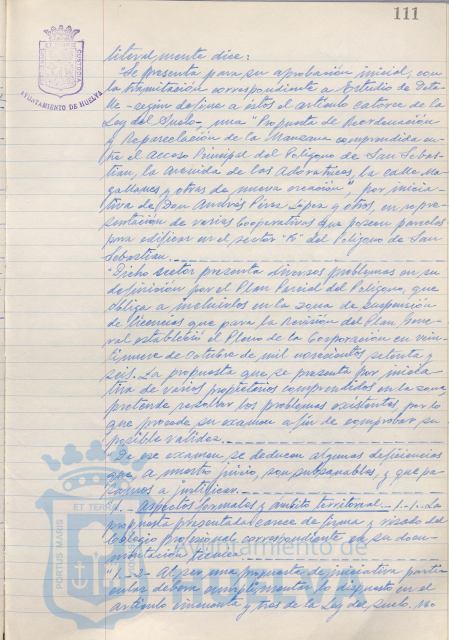 111
AYUNTAMIENTO DE HUELVA
literalmente dice:
"Se presenta para su aprobación inicial, con
la tramitación correspondiente a Estudio de Deta
lle -según define a éstos el artículo catorce de la
Ley del Suelo-, una "Propuesta de Reordenación
y Reparcelación de la Manzana comprendida en
tre el Acceso Principal del Polígono de San Sebas
tian, la Avenida de las Adoratrices, la calle Ma
gallanes y otras de nueva creación", por inicia
tiva de Don Andrés Pérez López y otros, en repre
sentación de varias Cooperativas que poseen parcelas
para edificar en el sector "R" del Polígono de San
Sebastian.
"Dicho sector presenta diversos problemas en su
definición por el Plan Parcial del Polígono, que
obliga a incluirlos en la zona de Suspensión
de Licencias que para la Revisión del Plan Gene
ral estableció el Pleno de la Corporación en vein
tinueve de Octubre de mil novecientos setenta y
seis. La propuesta que se presenta por inicia
tiva de varios propietarios comprendidos en la zona,
pretende resolver los problemas existentes por lo
que procede su examen a fin de comprobar su
posible validez.
"De ese examen se deducen algunas deficiencias
que, a nuestro juicio, son subsanables, y que pa
samos a justificar.
"1.- Aspectos formales y ámbito territorial.- 1.-1. La
propuesta presentada carece de firma y visado del
Colegio profesional correspondiente en su docu-
mentación técnica.
"1.-2- Al ser una propuesta de iniciativa parti
cular deberá cumplimentar lo dispuesto en el
artículo cincuenta y tres de la Ley del Suelo. No
PORTUS MARIS ET TERRAE
Ayuntamiento de